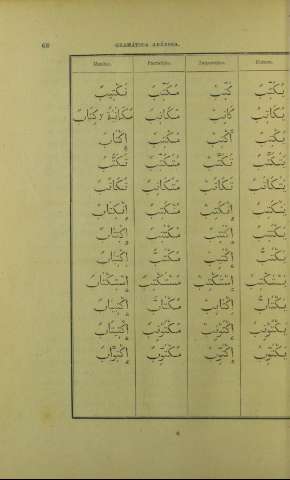 68 GRAMÁTICA ARÁBIGA.
Masdar. Participio. Imperativo. Futuro.
يُكَتِّبُ كَتِّبْ مُكَتِّبٌ تَكْتِيبٌ
يُكَاتِبُ كَاتِبْ مُكَاتِبٌ مُكَاتَبَةٌ y كِتَابٌ
يُكْتِبُ أَكْتِبْ مُكْتِبٌ إِكْتَابٌ
يَتَكَتَّبُ تَكَتَّبْ مُتَكَتِّبٌ تَكَتُّبٌ
يَتَكَاتَبُ تَكَاتَبْ مُتَكَاتِبٌ تَكَاتُبٌ
يَنْكَتِبُ إِنْكَتِبْ مُنْكَتِبٌ إِنْكِتَابٌ
يَكْتَتِبُ إِكْتَتِبْ مُكْتَتِبٌ إِكْتِتَابٌ
يَكْتَبُّ إِكْتَبِبْ مُكْتَبٌّ إِكْتِبَابٌ
يَسْتَكْتِبُ إِسْتَكْتِبْ مُسْتَكْتِبٌ إِسْتِكْتَابٌ
يَكْتَابُّ إِكْتَابِبْ مُكْتَابٌّ إِكْتِيبَابٌ
يَكْتَوْتِبُ إِكْتَوْتِبْ مُكْتَوْتِبٌ إِكْتِيتَابٌ
يَكْتَوِّبُ إِكْتَوِّبْ مُكْتَوِّبٌ إِكْتِوَّابٌ